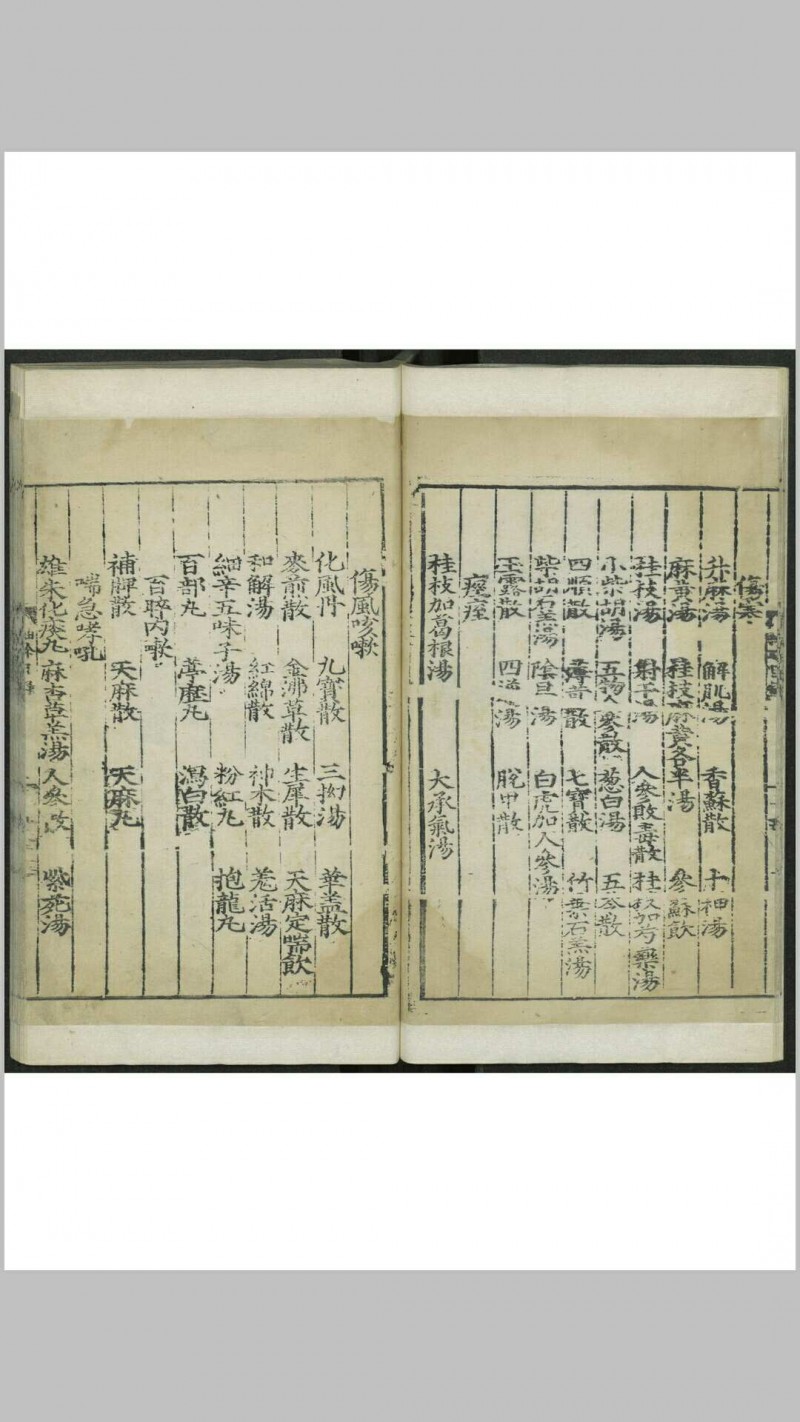 傷寒
升麻湯 解肌湯 香蘇散 十神湯
麻黄湯 桂枝麻黄各半湯 參蘇飲
桂枝湯 射干湯 人參敗毒散 桂枝加芍藥湯
小柴胡湯 五物人參散 葱白湯 五苓散
四順散 薄荷散 七寶散 竹葉石羔湯
柴胡石羔湯 陰旦湯 白虎加人參湯
玉露散 四逆湯 脫甲散
痙痓
桂枝加葛根湯 大承氣湯
傷風咳嗽
化風丹 九寳散 三拗湯 華盖散
麥煎散 金沸草散 生犀散 天麻定喘飲
和解湯 紅綿散 神朮散 羗活湯
細辛五味子湯 粉紅丸 抱龍丸
百部丸 葶藶丸 瀉白散
百晬内嗽
補脾散 天麻散 天麻丸
喘急哮吼
雄朱化痰丸 麻杏草羔湯 人參 紫菀湯